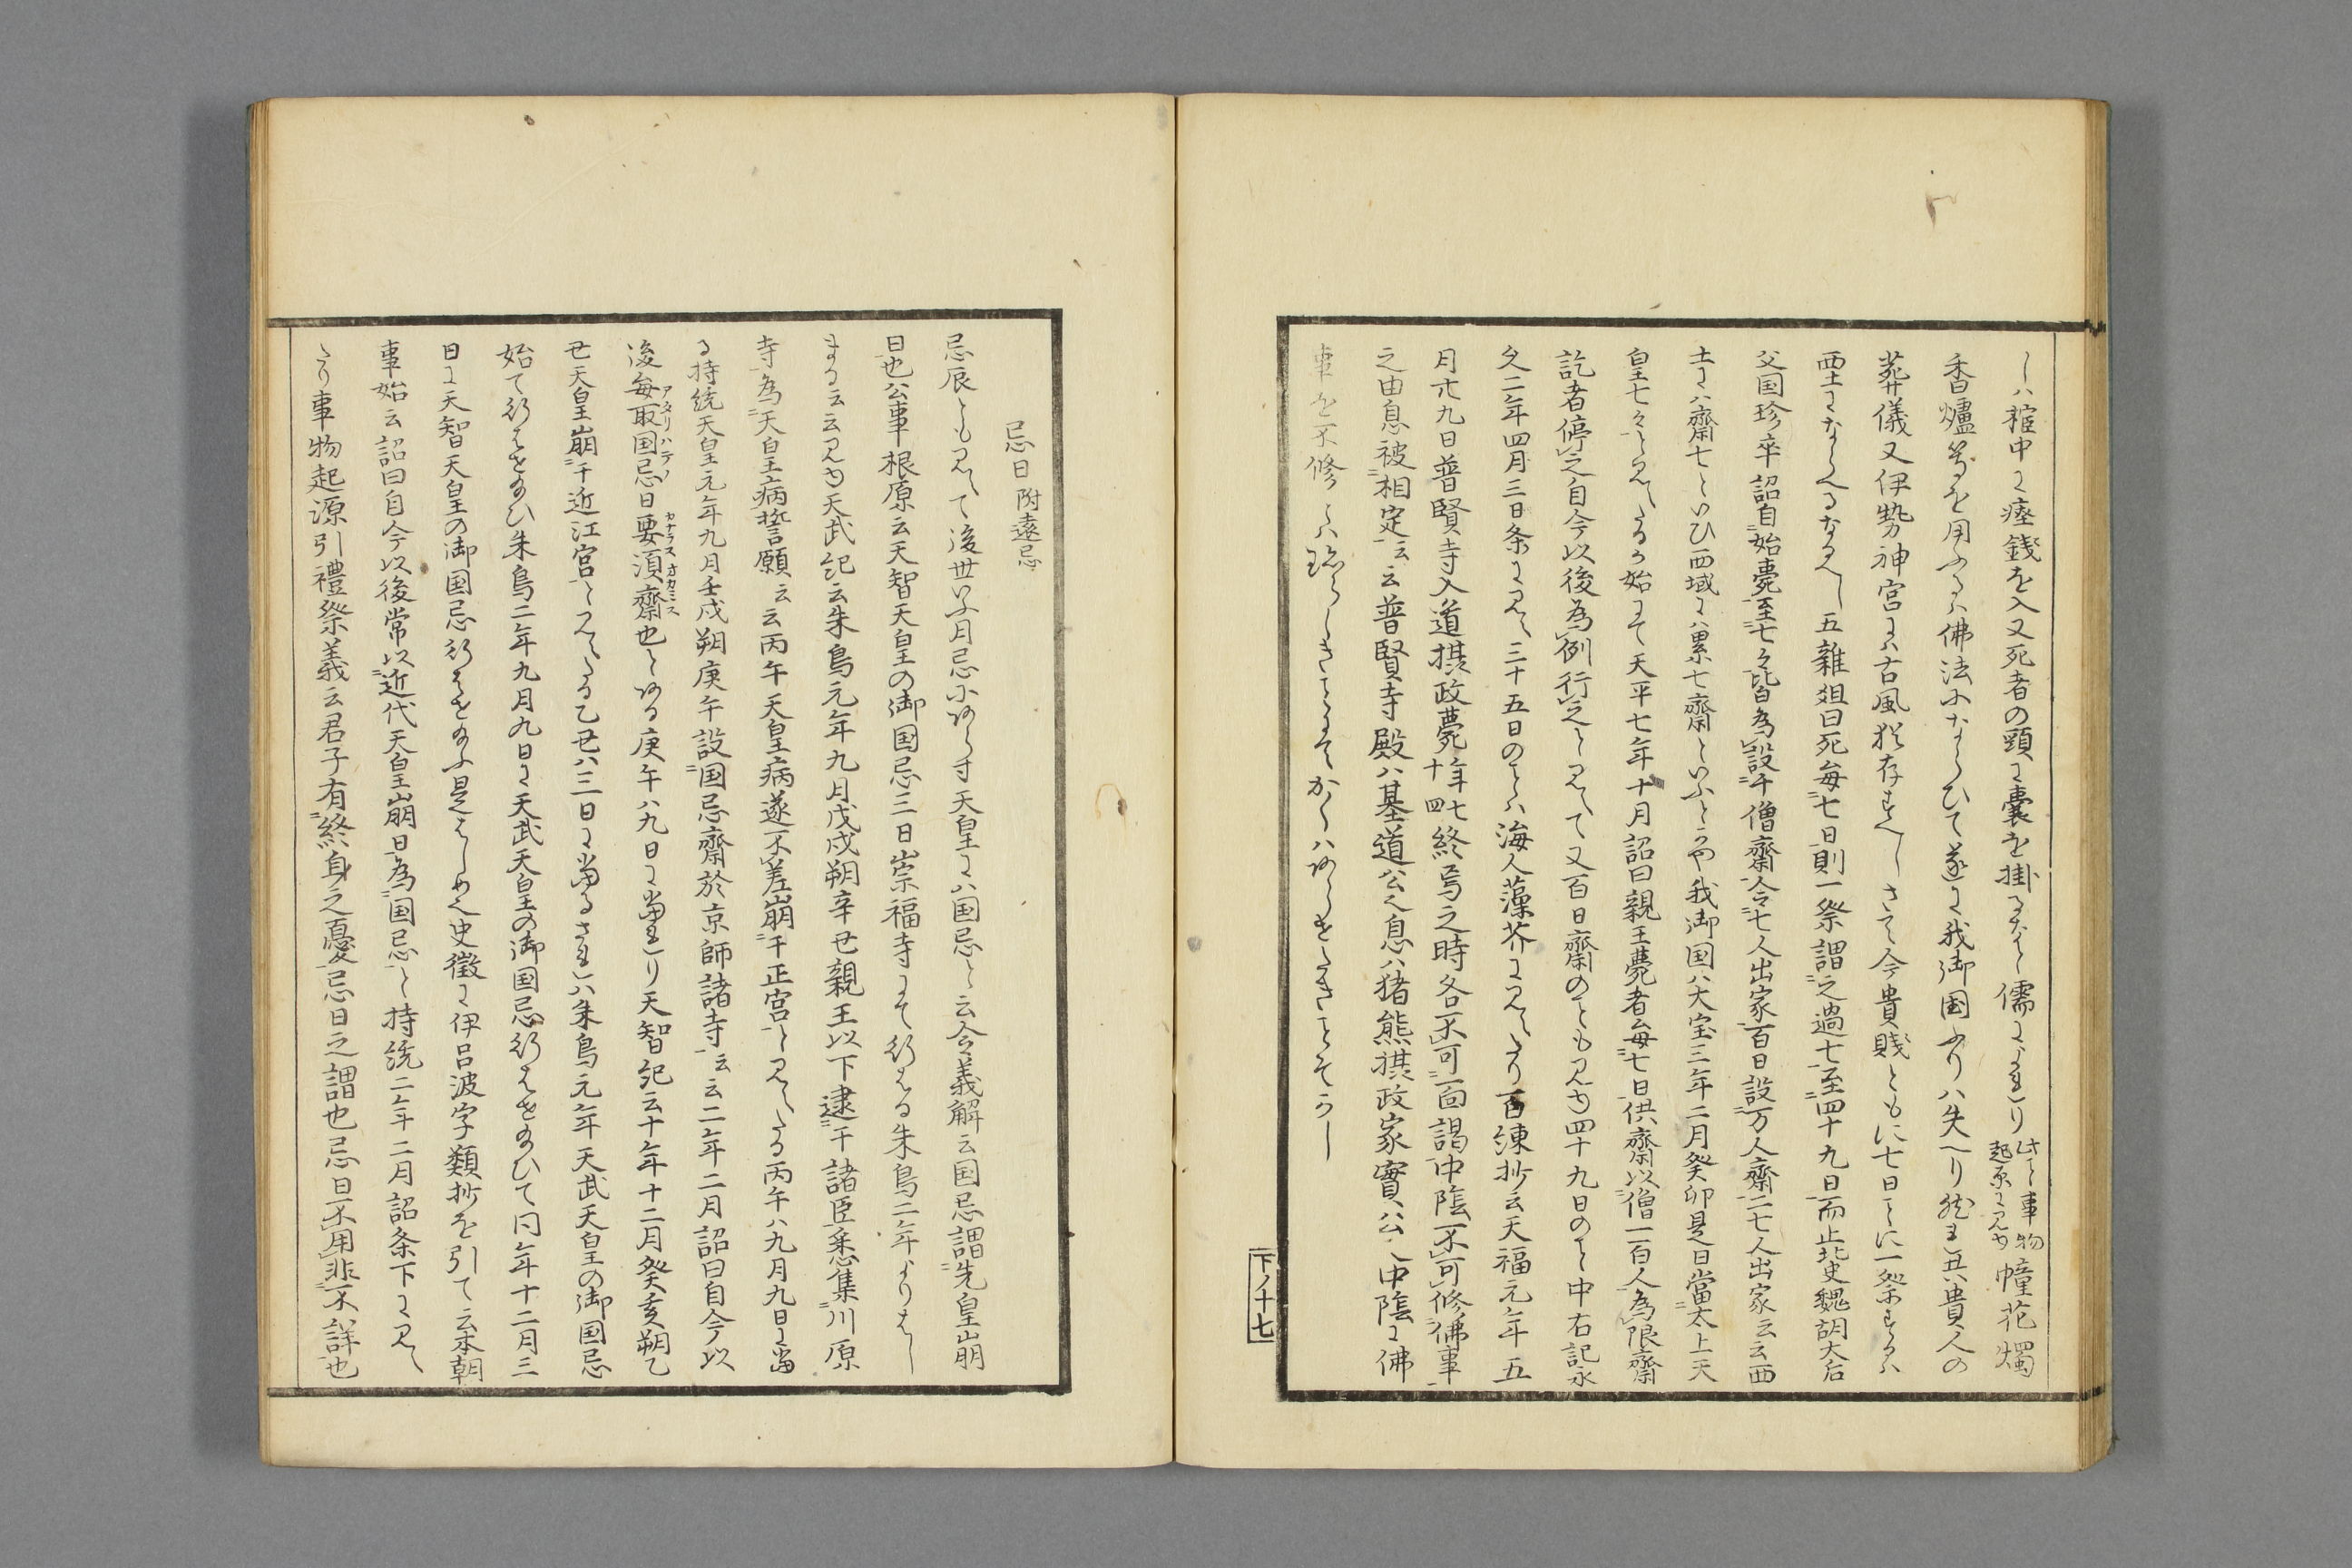 しハ棺中に瘞銭を入又死者の頸に嚢を掛るなと儒によれり此事事物起原に見ゆ幢花燭
香爐等を用ふるハ佛法にならひて遂に我御国ふりハ失へり然れ共貴人の
葬儀又伊勢神宮にハ古風猶存すへしさて今貴賤ともに七日ことに一祭するハ
西土にならへるなるへし五雜爼曰死毎七日則一祭謂之過七至四十九日而止北史魏胡太后
父国珍卒詔自始薨至七々皆為設千僧齋令七人出家百日設万人齋二七人出家云云西
土にハ齋七といひ西域にハ累七齋といふとかや我御国ハ大宝三年二月癸卯是日當太上天
皇七々と見へたるか始にて天平七年十月詔曰親王薨者毎七日供齋以僧一百人為限齋
訖者停之自今以後為例行之と見へて又百日齋のことも見ゆ四十九日のこと中右記永
久二年四月三日条に見へ三十五日のことハ海人藻芥に見へたり百練抄云天福元年五
月廿九日普賢寺入道摂政薨年七十四終焉之時各不可面謁中陰不可修佛事
之由息被相定云云普賢寺殿ハ基通公之息ハ猪熊摂政家實公也中陰に佛
事を不修ハ珍らしきことにてかくハあらまじきことそかし
下ノ十七
忌日附遠忌
忌辰とも見へて後世いふ月忌にあらす天皇にハ国忌と云令義解云国忌謂先皇崩
日也公事根原云天智天皇の御国忌三日崇福寺にて行はる朱鳥二年よりはし
まる云云見ゆ天武紀云朱鳥元年九月戊戌朔辛丑親王以下逮于諸臣悉集川原
寺為天皇病誓願云云丙午天皇病遂不差崩于正宮と見へたる丙午ハ九月九日に當
る持統天皇元年九月壬戌朔庚午設国忌齋於京師諸寺云云二年二月詔曰自今以
後毎取国忌日要須齋也とある庚午ハ九日に當れり天智紀云十年十二月癸亥朔乙
アタリハテノ カナラス オカミス
丑天皇崩于近江宮と見へたる乙丑ハ三日に當るされハ朱鳥元年天武天皇の御国忌
始て行はせ給ひ朱鳥二年九月九日に天武天皇の御国忌行はせ給ひて同年十二月三
日に天智天皇の御国忌行はせ給ふ是はしめ也史徴に伊呂波字類抄を引て云本朝
事始云詔曰自今以後常以近代天皇崩日為国忌と持統二年二月詔条下に見へ
たり事物起源引禮祭義云君子有終身之憂忌日之謂也忌日不用非不詳也